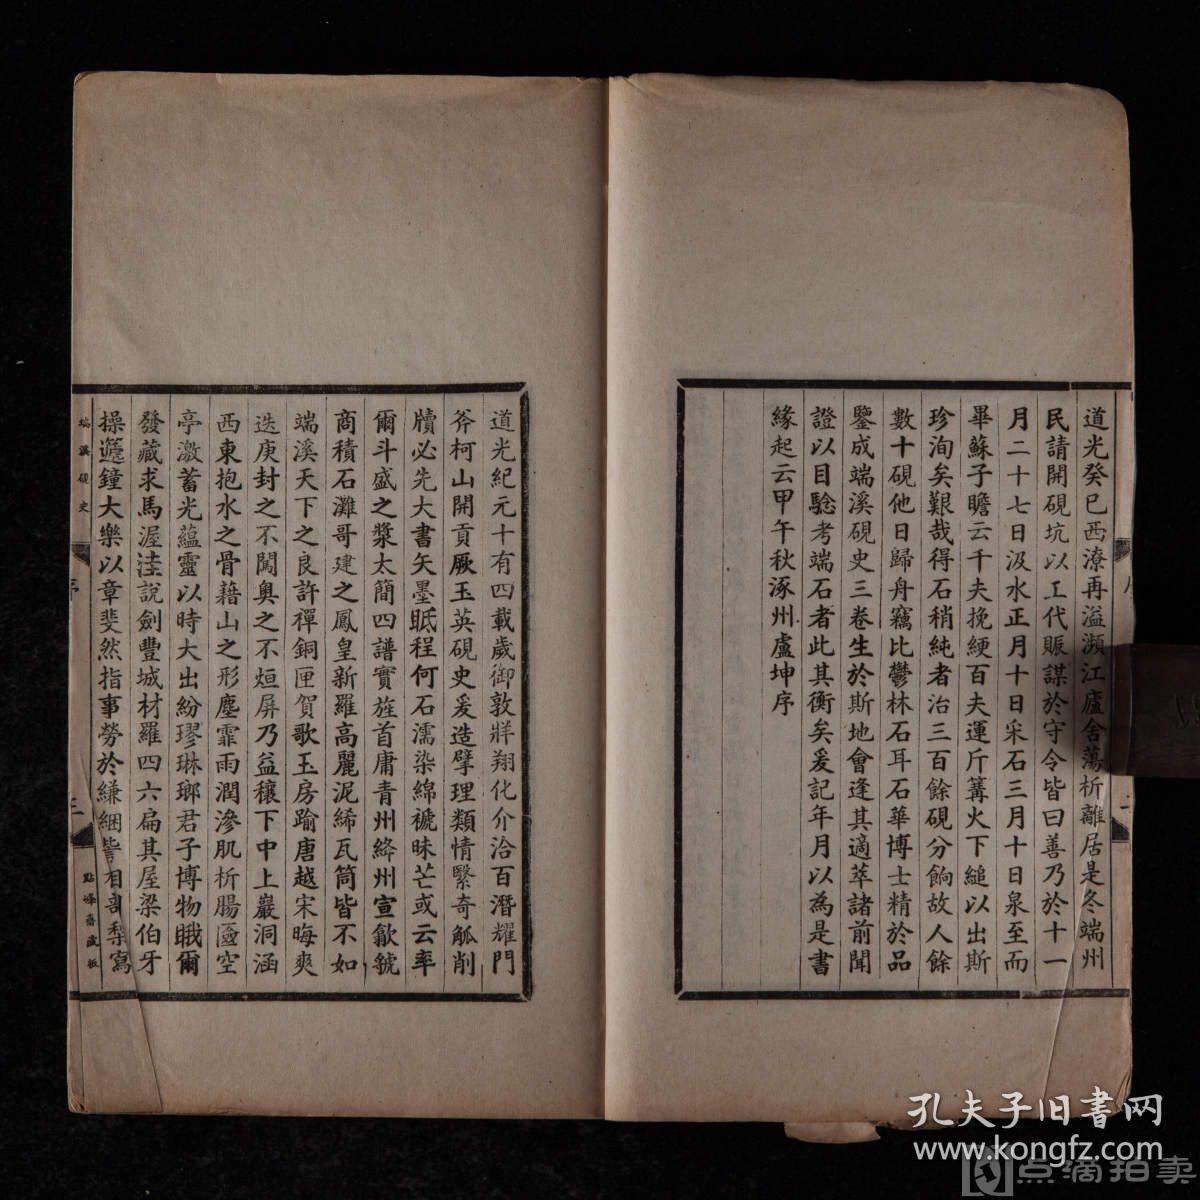 道光癸巳西潦再溢瀕江廬舍蕩析離居是冬端州
民請開硯坑以工代賑謀於守令皆曰善乃於十一
月二十七日汲水正月十日采石三月十日泉至而
畢蘇子瞻云千夫挽綆百夫運斤篝火下縋以出斯
珍洵矣艱哉得石稍純者治三百餘硯分餉故人餘
數十硯他日歸舟竊比鬱林石耳石華博士精於品
鑒成端溪硯史三卷生於斯地會逢其適萃諸前聞
證以目驗考端石者此其衡矣爰記年月以為是書
緣起云甲午秋涿州盧坤序
道光紀元十有四載歲御敦牂翔化介洽百潛耀門
斧柯山開貢厥玉英硯史爰造擘理類情緊奇觚削
牘必先大書矢墨眡程何石濡染綿褫昧芒或云率
爾斗盛之漿太簡四譜實旌首庸青州絳州宣歙虢
商積石灘哥建之鳳皇新羅高麗泥絺瓦筒皆不如
端溪天下之良許禪銅匣賀歌玉房踰唐越宋晦爽
迭庚封之不闖奧之不烜屏乃益穰下中上巖洞涵
西東抱水之骨藉山之形塵霏雨潤滲肌析腸匳空
亭激蓄光蘊靈以時大出紛璆琳瑯君子博物睋爾
發藏求馬渥洼說劍豐城材羅四六扁其屋梁伯牙
操蹵鐘大樂以章斐然指事勞於縑緗訾相剞梨寫
端溪硯史
序
三
點峰齋藏板
孔夫子旧書网
www.kongfz.com
点滴拍卖